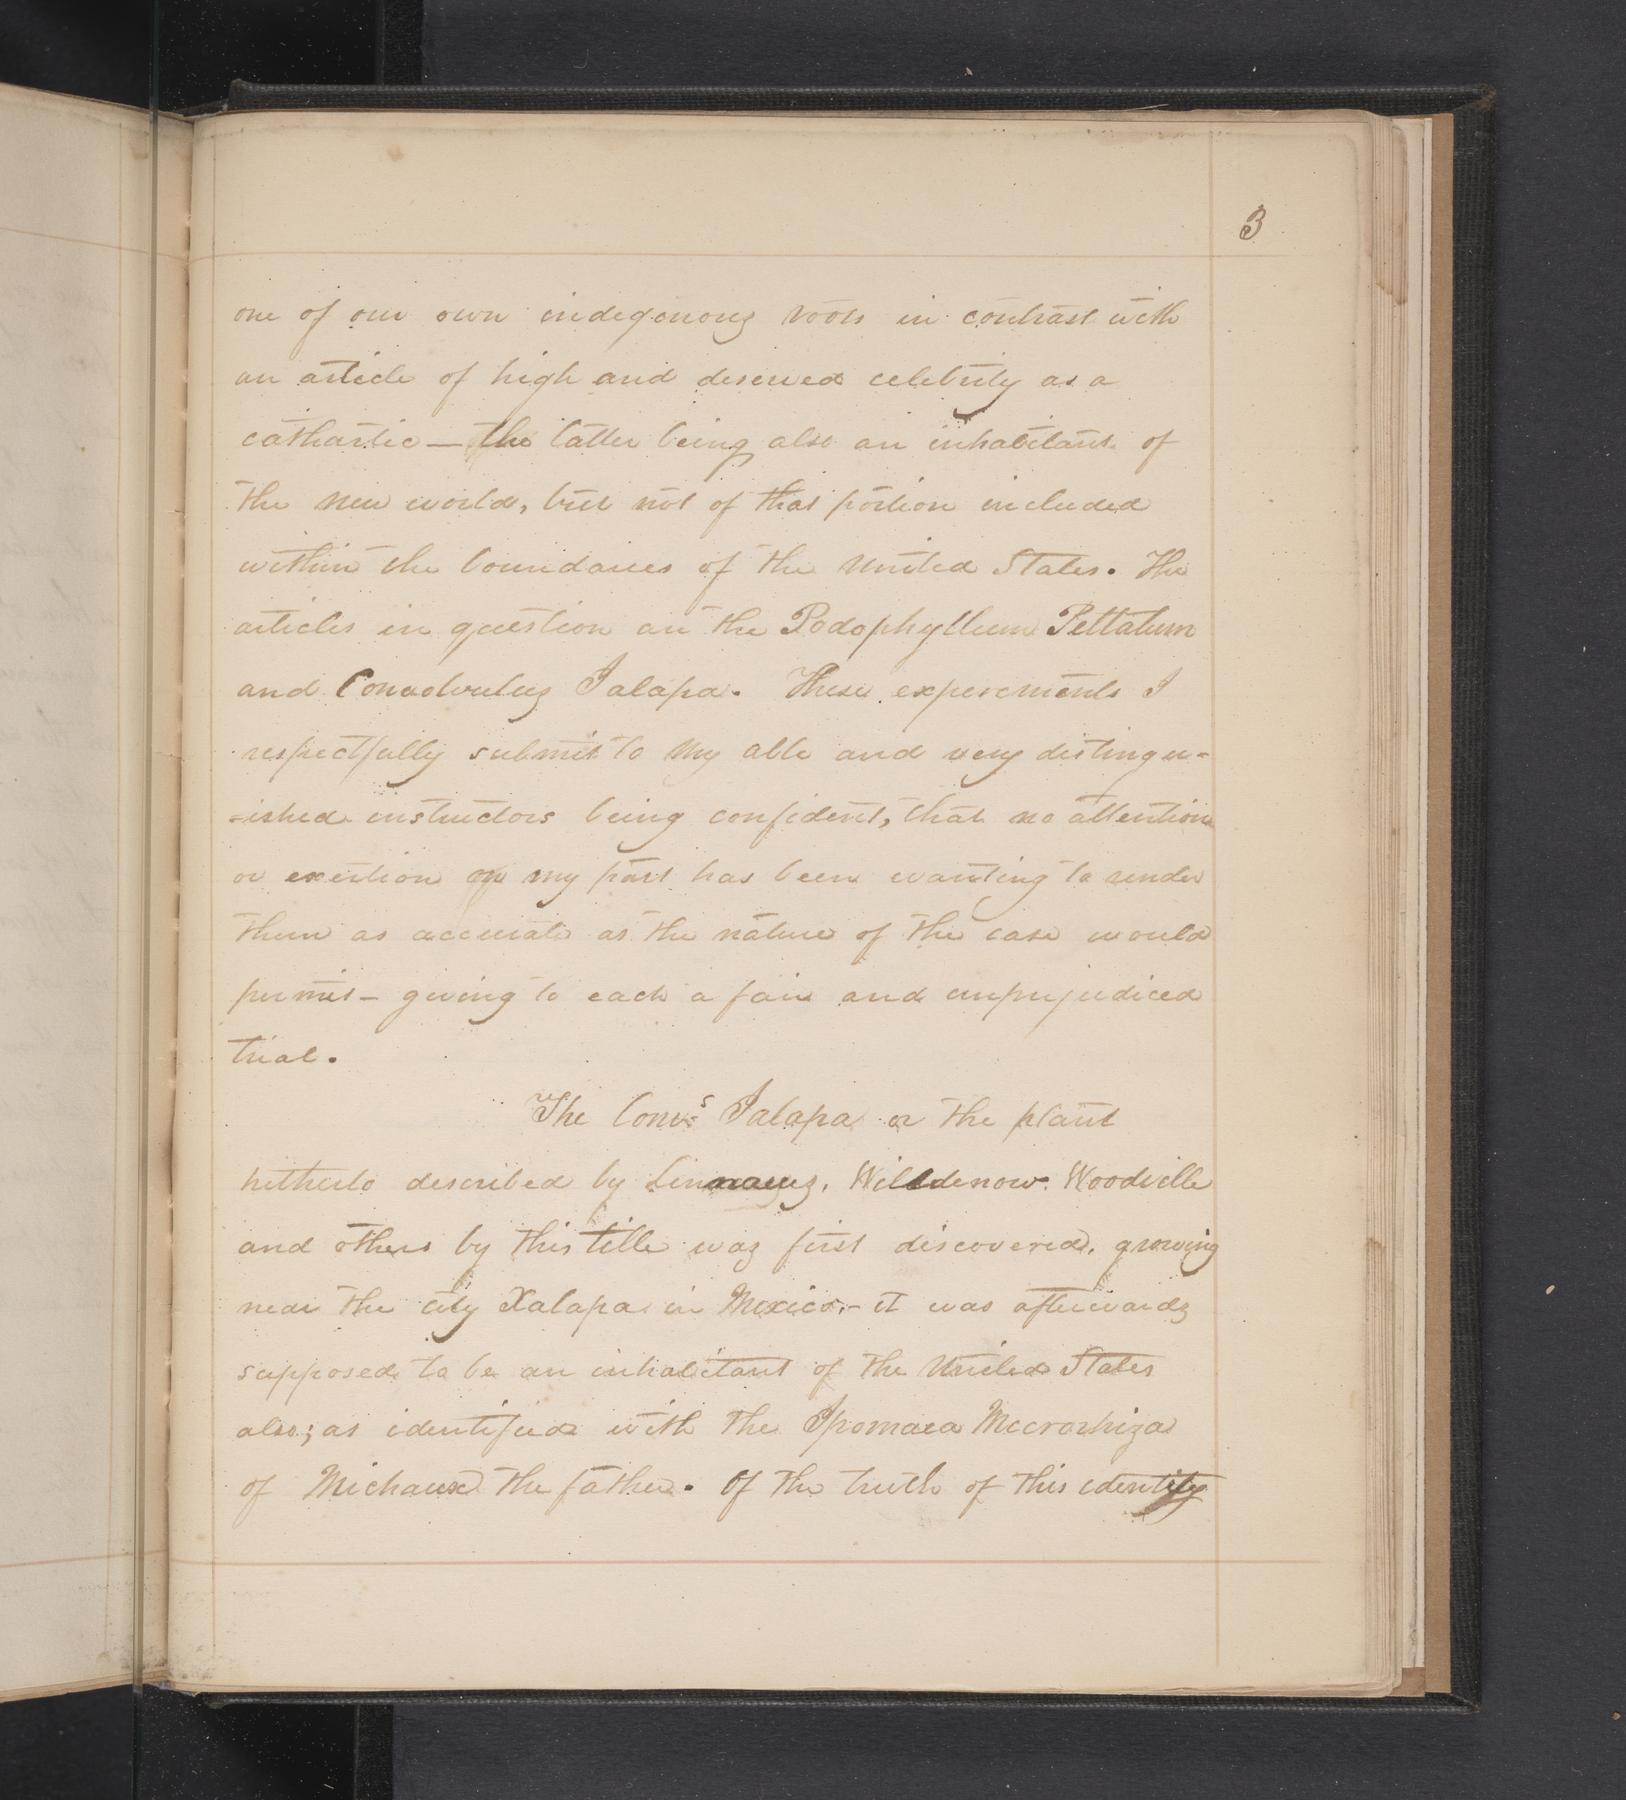 3
one of our own indegenous roots in contrast with
an article of high and deserved celebrity as a
cathartic — the latter being also an inhabitant of
the new world, but not of that portion included
within the boundaries of the United States. The
articles in question are the Podophyllum Peltatum
and Convolvulus Jalapa. These experements I
respectfully submit to my able and very distingu-
-ished instructors being confident, that no attention
or exertion on my part has been wanting to render
them as accurate as the nature of the case would
permit - giving to each a fair and unprejudiced
trial.
The Convs Jalapa or the plant
hitherto described by Linnaeus, Willdenow. Woodville
and others by this title was first discovered, growing
near the city Xalapa in Mexico, - it was afterwards
supposed to be an inhabitant of the United States
also; as identified with the Ipomaea Mccrorhiza
of Michaux the father. Of the truth of this identity